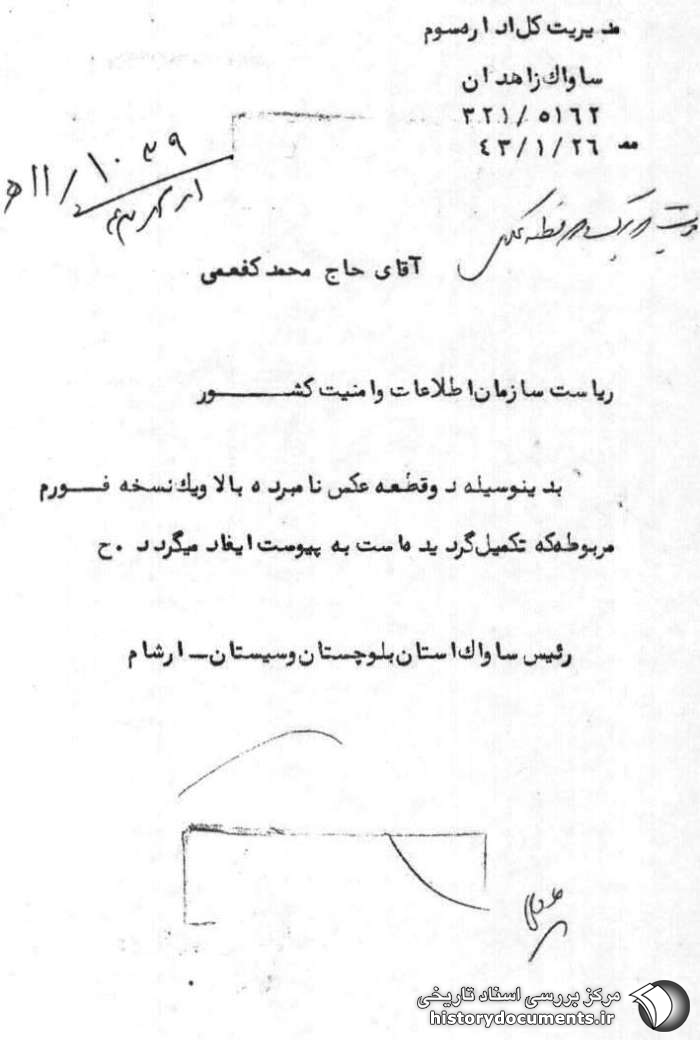 مدیریت کل اداره سوم
ساواك زاهدان
٣٢١/٥١٦٢
٤٣/١/٢٦
١٠٣٩
/١١ ه
آقای حاج محمد کفعمی
ریاست سازمان اطلاعات وامنیت کشـــور
بدینوسیله دوقطعه عکس نامبرده بالا ویك نسخه فـــورم
مربوطه که تکمیل گردیده است به پیوست ایفاد میگردد .ح
رئیس ساواك استان بلوچستان وسیستان ــ ارشام
مرکز بررسی اسناد تاریخی
historydocuments.ir